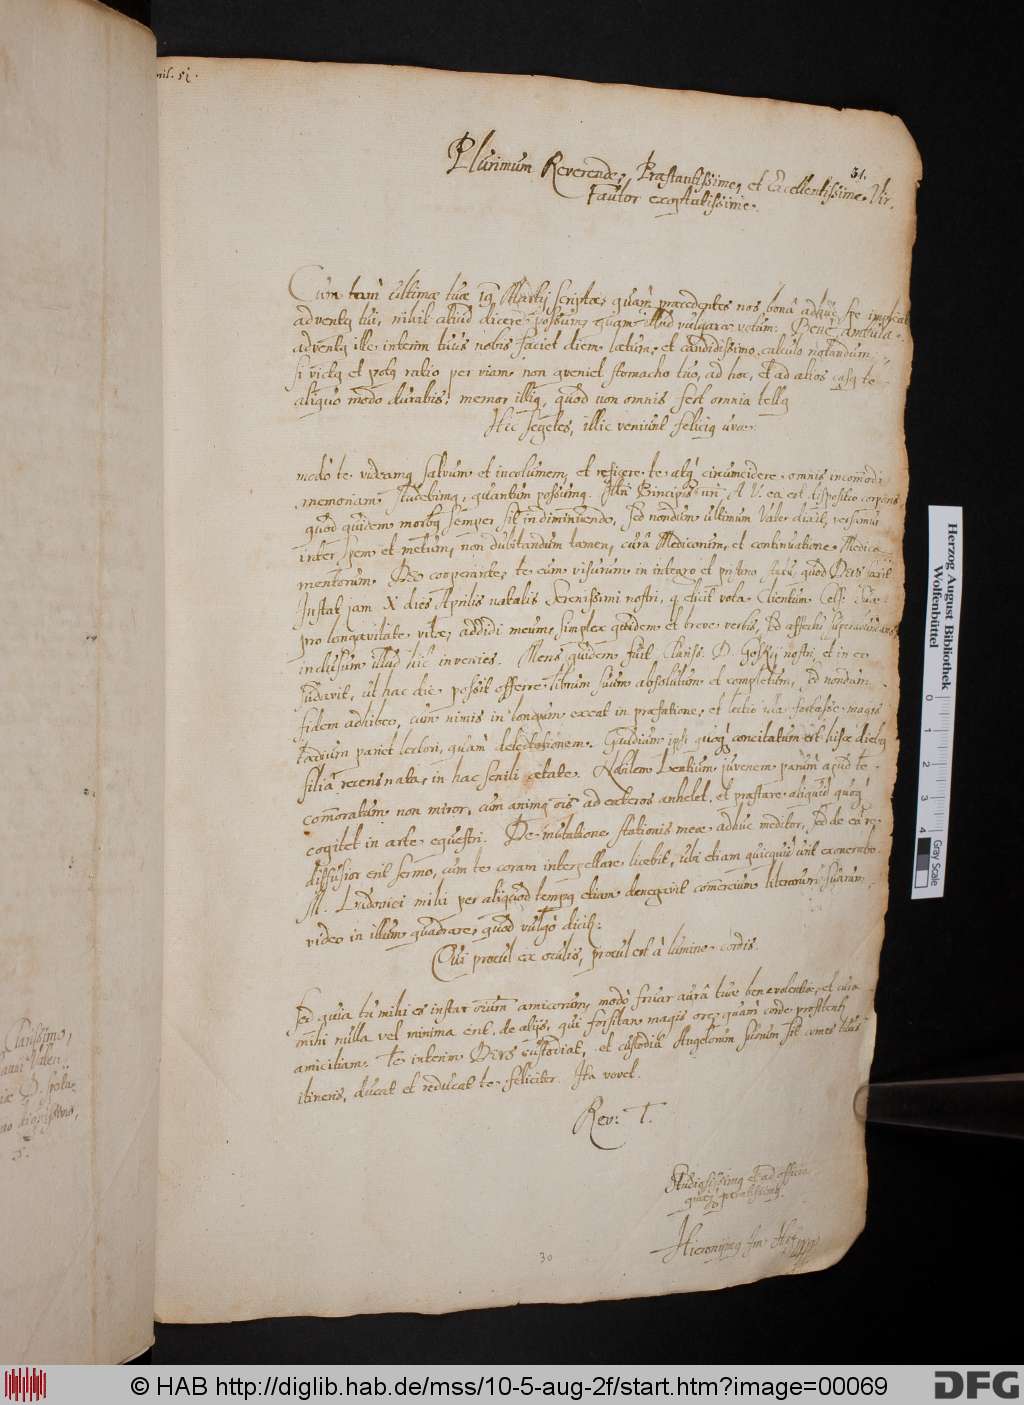 51.
Plurimum Reverende, Præstantissime, et Excellentissime Vir,
Fautor exoptatissime.
Cum tam ultimæ tuæ 19 Martij scriptæ, quàm præcedentes nos bonâ adhuc spe
adventq tui, nihil aliud dicere possum quam illud vulgare votum: Bene ambula.
adventq ille interim tuus nobis faciet diem lætum, et candidissimo calculo notandum
si victq et potq ratio per viam non qveniet stomacho tuo, ad hoc, et ad alios casq te
aliquo modo durabis; memor illiq, quòd non omnis fert omnia tellq
Hic segetes, illic veniunt feliciq uvæ.
modò te videamq salvum et incolumem, et reficere te atq circumcidere omnis incomodi
memoriam studebimq, quantum possumq. Principis nri A V. ea est dispositio corporis
quòd quidem morbq semper sit in diminuendo, sed nondum ultimum Vale dixit, versamur
inter spem et metum, non dubitandum tamen, curâ Medicorum, et continuatione Medica-
mentorum Deo cooperante, te eum visurum in integro et statu, quod DEVS faxit
Instat jam X dies Aprilis natalis Serenissimi nostri, q elicit vota Clientum Cels: suæ
pro longævitate vitæ, addidi meum, simplex quidem et breve verbis, sed affectu
inclusum illud hîc invenies. Mens quidem fuit Clariss. D. Goskij nostri, et in eo
sudavit, ut hac die possit offerre librum suum absolutum et completum, sed nondum
fidem adhibeo, cum nimis in longum exeat in præfatione, et lectio illa fortasse magis
tædium pariet lectori, quàm delectationem. Gaudium ipsi quoq concitatum est hisce diebq
filiâ recens nata, in hac senili ætate. Nobilem Lentium juvenem parùm apud te
comoratum non miror, cum animq ois ad exteros anhelet, et præstare aliquid quoq
cogitet in arte equestri. De mutatione stationis meæ adhuc meditor, sed de eâ re
diffusior erit sermo, cum te coram interpellare licebit, ubi etiam quicquid
M. Ludovici mihi per aliquod tempq etiam denegavit comercium literarum suarum,
video in illum quadrare, quod vulgò dicit:
Qui procul ex oculis, procul est à lumine cordis.
Sed quia tu mihi es instar oium amicorum, modò fruar aurâ tuæ benevolentiæ, et cura
mihi nulla vel minima erit de alijs, qui forsitan magis ore, quàm corde profitentr
amicitiam. Te interim DEVS custodiat, et custodia Angelorum suorum sit comes tuus
itineris, ducat et reducat te feliciter. Ita vovet.
Rev: T.
Studiosissimq et ad officia
quævis paratissimq
Hieronymq
30
Clarissimo,
Herzog August Bibliothek
Wolfenbüttel
0 1 2 3 4
Gray Scale
© HAB http://diglib.hab.de/mss/10-5-aug-2f/start.htm?image=00069
DFG